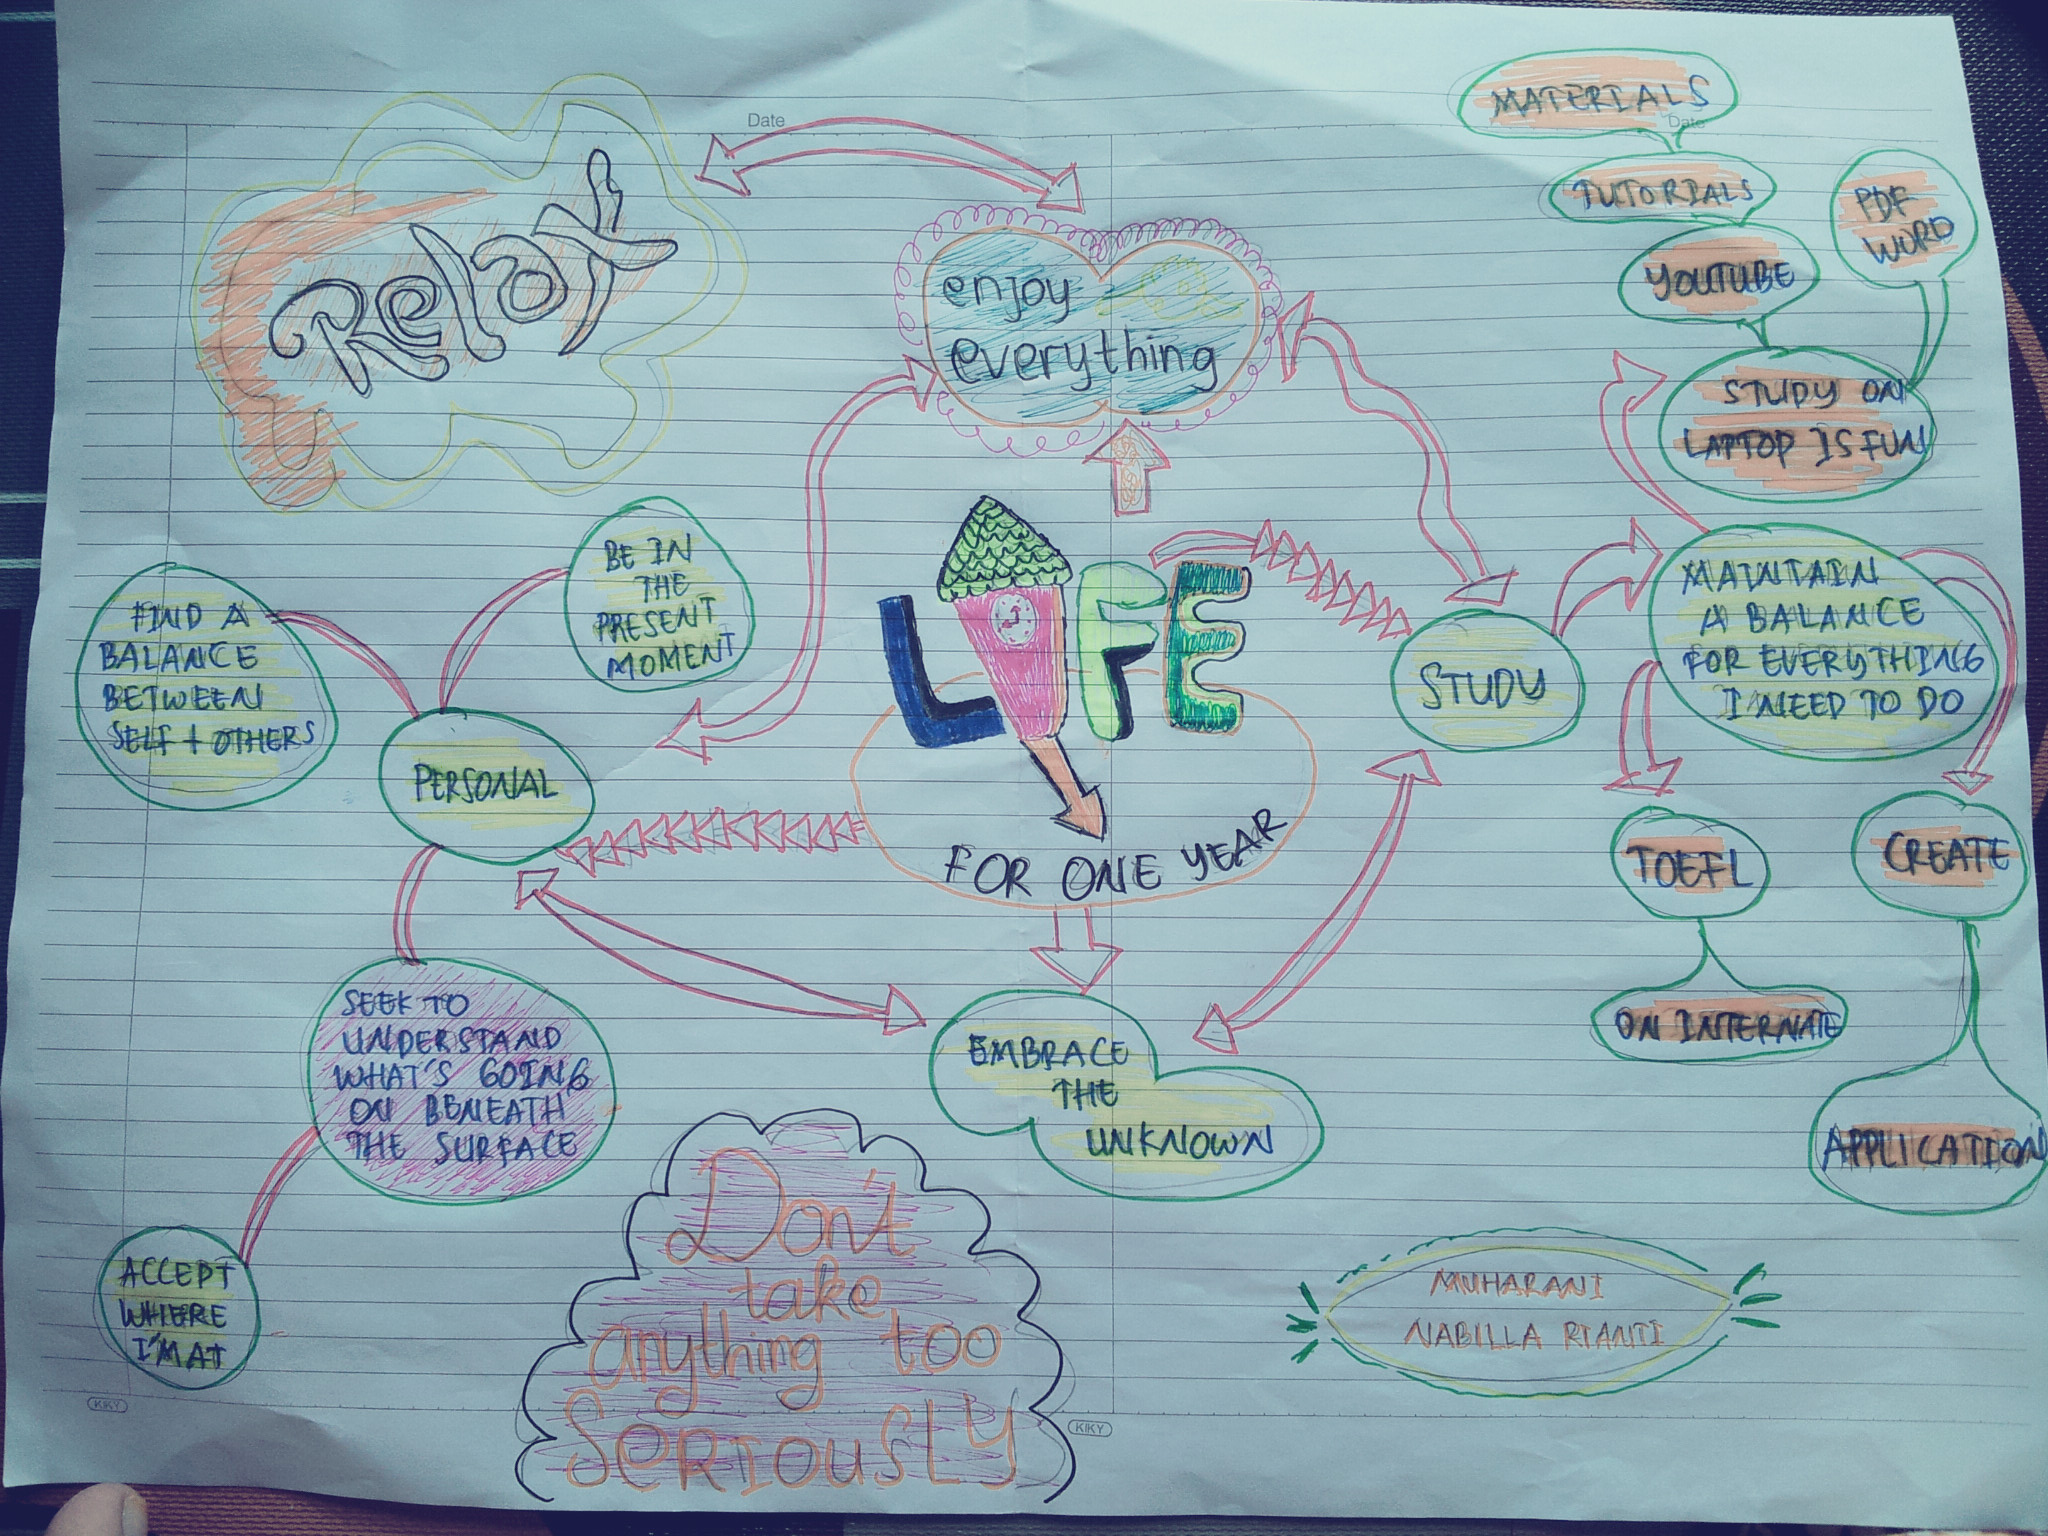 Date
Date
Relax
enjoy
everything
MATERIALS
TUTORIALS
YOUTUBE
PDF
WORD
STUDY ON
LAPTOP IS FUN
BE IN
THE
PRESENT
MOMENT
FIND A
BALANCE
BETWEEN
SELF + OTHERS
PERSONAL
LIFE
FOR ONE YEAR
STUDY
MAINTAIN
A BALANCE
FOR EVERYTHING
I NEED TO DO
TOEFL
CREATE
ON INTERNATE
APPLICATION
SEEK TO
UNDERSTAND
WHAT'S GOING
ON BENEATH
THE SURFACE
EMBRACE
THE
UNKNOWN
ACCEPT
WHERE
I'M AT
Don't
take
anything too
SERIOUSLY
MUHARANI
NABILLA RIANTI
KIKY
KIKY